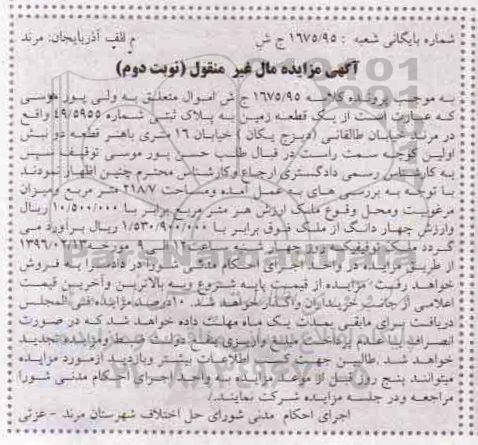 شماره بایگانی شعبه : ۱۶۷۵/۹۵ ج ش م الف آذربایجان: مرند
آگهی مزایده مال غیر منقول (نوبت دوم)
به موجب پرونده کلاسه ۱۶۷۵/۹۵ ج ش اموال متعلق به ولی پور موسی
که عبارت است از یک قطعه زمین به پلاک ثبتی شماره ۴۹/۵۹۵۵ واقع
در مرند خیابان طالقانی (دیزج یکان) خیابان ۱۶ متری باهنر قطعه دو نبش
اولین کوچه سمت راست در قبال طلب حسن پور موسی توقیف سپس
به کارشناس رسمی دادگستری ارجاع وکارشناس محترم چنین اظهار نمودند
با توجه به بررسی های به عمل آمده ومساحت ۲۱۸۷ متر مربع ومیزان
مرغوبیت ومحل وقوع ملک ارزش هر متر مربع برابر با ۱۰/۵۰۰/۰۰۰ ریال
وارزش چهار دانگ از ملک فوق برابر با ۱/۵۳۰/۹۰۰/۰۰۰ ریال براورد می
گردد ملک توقیفی روز چهار شنبه ساعت ۱۲ الی ۹ مورخه ۱۳۹۶/۰۲/۱۳
از طریق مزایده در واحد اجرای احکام مدنی شورا در دادسرا به فروش
خواهد رفت مزایده از قیمت پایه شروع وبه بالاترین وآخرین قیمت
اعلامی از جانب خریداران واگذار خواهد شد ۱۰ درصد مزایده فی المجلس
دریافت برای مابقی بمدت یک ماه مهلت داده خواهد شد که در صورت
انصراف یا عدم پرداخت مبلغ واریزی بنفع دولت ضبط ومزایده تجدید
خواهد شد طالبین جهت کسب اطلاعات بیشتر وبازدید ازمورد مزایده
میتوانند پنج روز قبل از موعد مزایده به واحد اجرای احکام مدنی شورا
مراجعه ودر جلسه مزایده شرکت نمایند./
اجرای احکام مدنی شورای حل اختلاف شهرستان مرند - عزتی
ParsNamadData